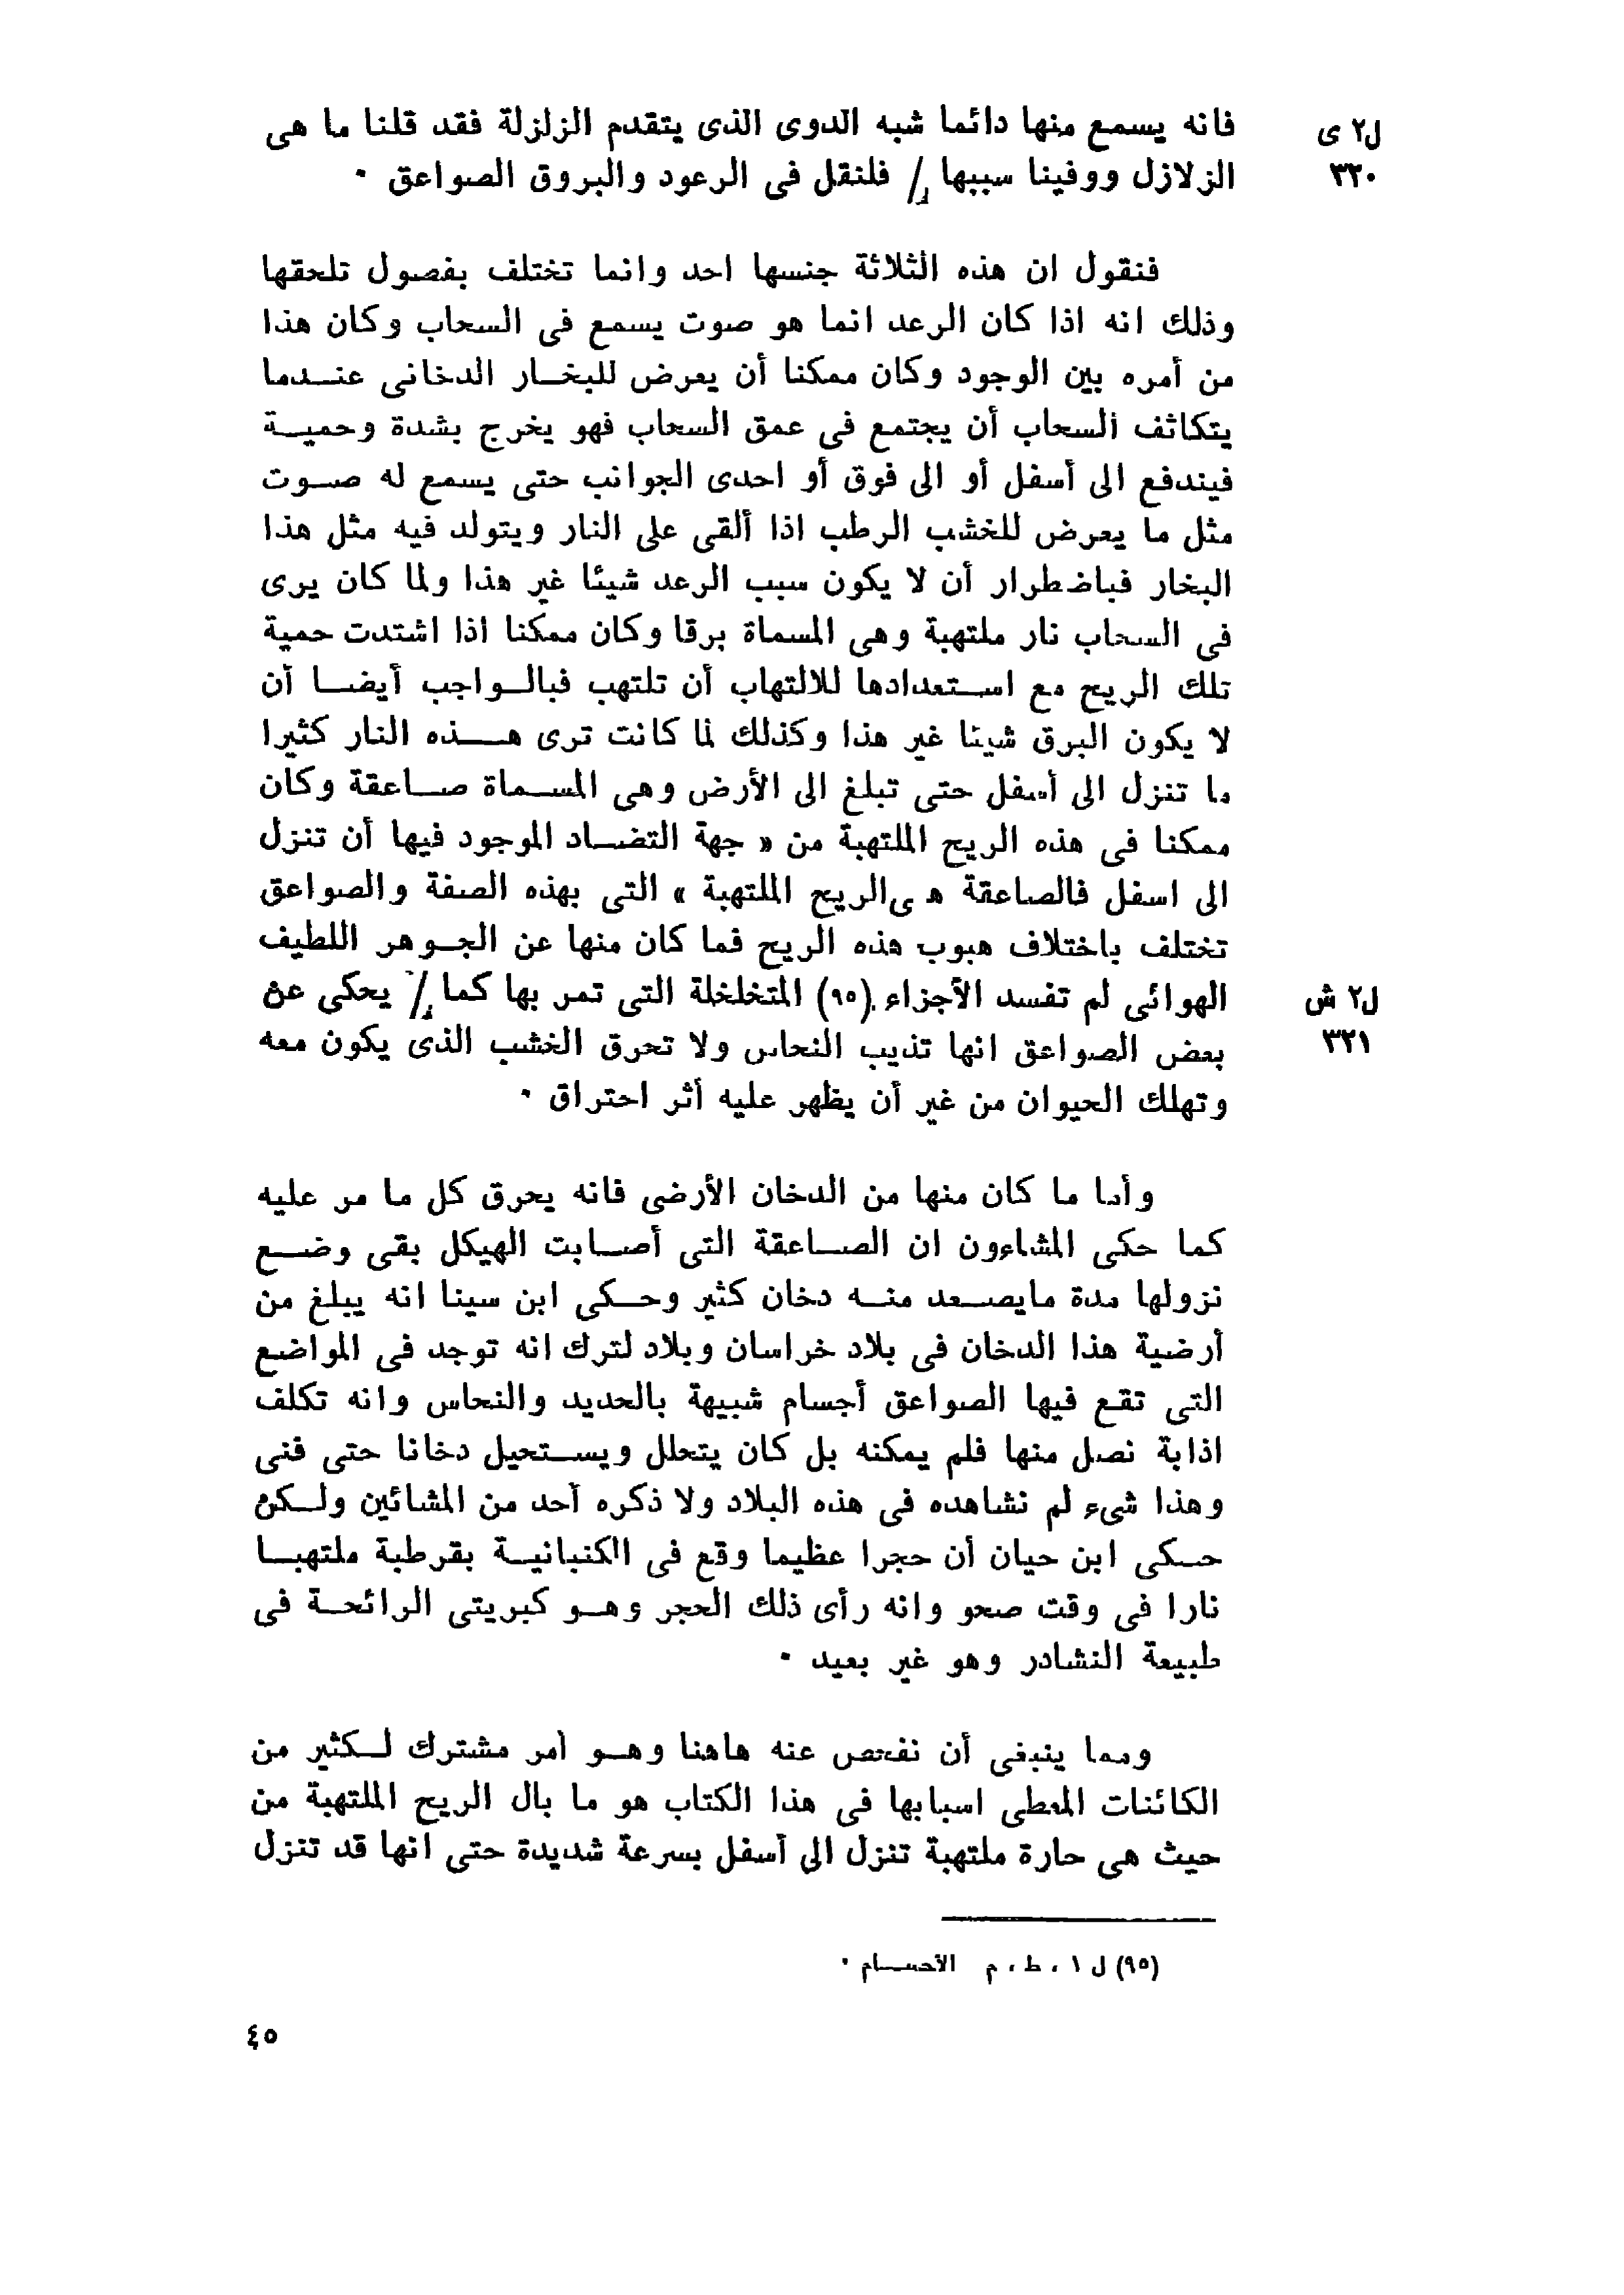 فانه يسمع منها دائما شبه الدوى الذى يتقدم الزلزلة فقد قلنا ما هى
ل٢ ى
الزلازل ووفينا سببها / فلنقل فى الرعود والبروق الصواعق ٠
٣٢٠
فنقول ان هذه الثلاثة جنسها احد وانما تختلف بفصول تلحقها
وذلك انه اذا كان الرعد انما هو صوت يسمع فى السحاب وكان هذا
من أمره بين الوجود وكان ممكنا أن يعرض للبخار الدخانى عندما
يتكاثف السحاب أن يجتمع فى عمق السحاب فهو يخرج بشدة وحمية
فيندفع الى أسفل أو الى فوق أو احدى الجوانب حتى يسمع له صوت
مثل ما يعرض للخشب الرطب اذا ألقى على النار ويتولد فيه مثل هذا
البخار فباضطرار أن لا يكون سبب الرعد شيئا غير هذا ولما كان يرى
فى السحاب نار ملتهبة وهى المسماة برقا وكان ممكنا اذا اشتدت حمية
تلك الريح مع استعدادها للالتهاب أن تلتهب فبالواجب أيضا أن
لا يكون البرق شيئا غير هذا وكذلك لما كانت ترى هذه النار كثيرا
ما تنزل الى أسفل حتى تبلغ الى الأرض وهى المسماة صاعقة وكان
ممكنا فى هذه الريح الملتهبة من « جهة التضاد الموجود فيها أن تنزل
الى اسفل فالصاعقة ه ىالريح الملتهبة » التى بهذه الصفة والصواعق
تختلف باختلاف هبوب هذه الريح فما كان منها عن الجوهر اللطيف
الهوائى لم تفسد الأجزاء (٩٥) المتخلخلة التى تمر بها كما / يحكى عن
ل٢ ش
بعض الصواعق انها تذيب النحاس ولا تحرق الخشب الذى يكون معه
٣٢١
وتهلك الحيوان من غير أن يظهر عليه أثر احتراق ٠
وأما ما كان منها من الدخان الأرضى فانه يحرق كل ما مر عليه
كما حكى المشاءون ان الصاعقة التى أصابت الهيكل بقى وضع
نزولها مدة مايصعد منه دخان كثير وحكى ابن سينا انه يبلغ من
أرضية هذا الدخان فى بلاد خراسان وبلاد لترك انه توجد فى المواضع
التى تقع فيها الصواعق أجسام شبيهة بالحديد والنحاس وانه تكلف
اذابة نصل منها فلم يمكنه بل كان يتحلل ويستحيل دخانا حتى فنى
وهذا شىء لم نشاهده فى هذه البلاد ولا ذكره أحد من المشائين ولكن
حكى ابن حيان أن حجرا عظيما وقع فى الكنبانية بقرطبة ملتهبا
نارا فى وقت صحو وانه رأى ذلك الحجر وهو كبريتى الرائحة فى
طبيعة النشادر وهو غير بعيد ٠
ومما ينبغى أن نفحص عنه هاهنا وهو أمر مشترك لكثير من
الكائنات المعطى اسبابها فى هذا الكتاب هو ما بال الريح الملتهبة من
حيث هى حارة ملتهبة تنزل الى أسفل بسرعة شديدة حتى انها قد تنزل
(٩٥) ل ١ ، ط ، م الأجسام ٠
٤٥